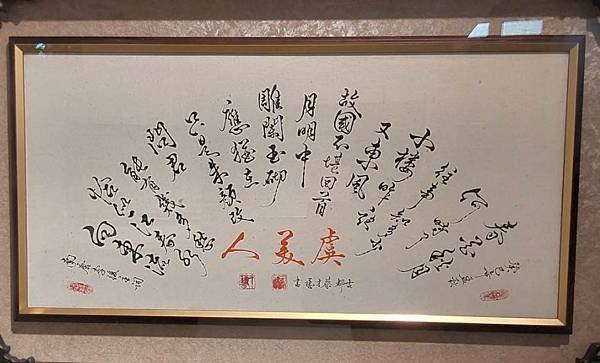 春花秋月
何時了
往事知多少
小樓昨夜
又東風
故國不堪回首
月明中
雕闌玉砌
應猶在
只是朱顏改
問君
能有幾多愁
恰似一江春水
向東流
南唐李後主詞
虞美人